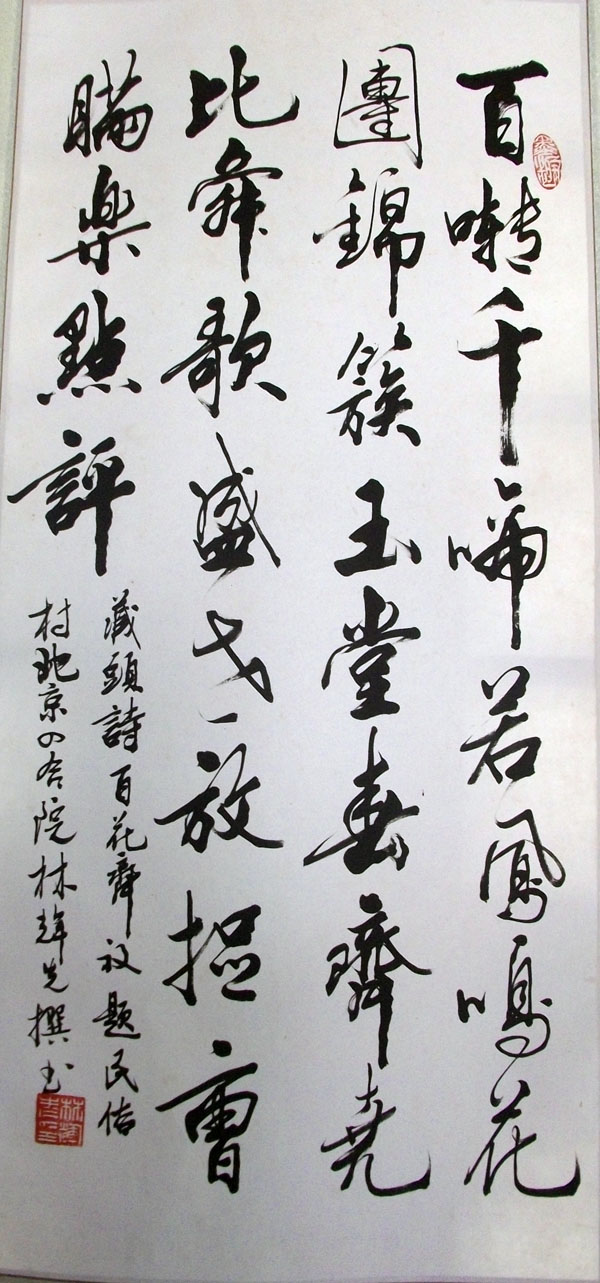 百囀千啼若鳳鳴花
團錦簇玉堂春齊堯
比舜歌盛世放摳曹
瞞樂點評
藏頭詩百花齊放題民俗
村北京四合院林先撰书